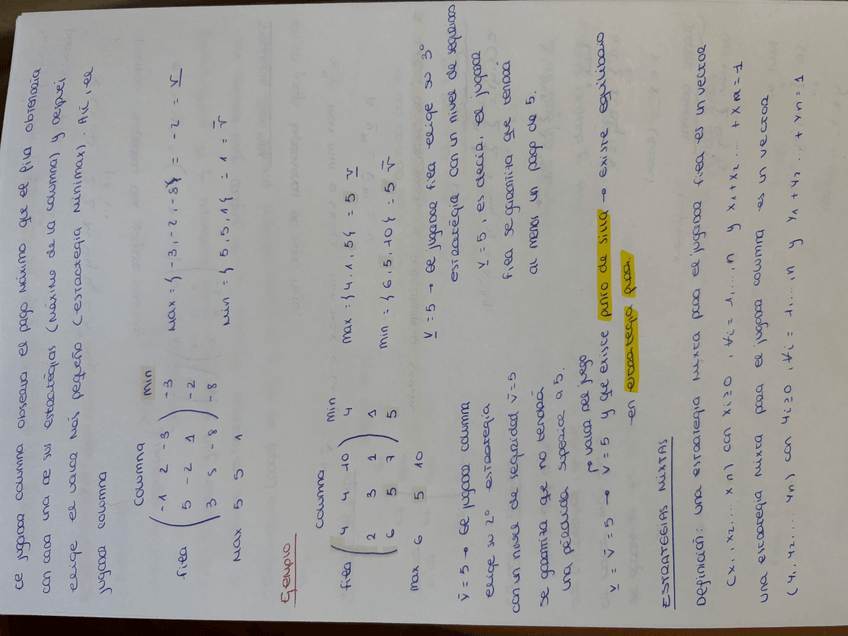 El jugador columna observa el pago máximo que el fila obtendría
con cada una de sus estrategias (máximo de la columna) y después
elige el valor más pequeño (estrategia minimax). Así, el
jugador columna
Columna min
-1 2 -3 -3
fila 5 -2 1 -2
3 5 -8 -8
Max 5 5 1
Max = {-3, -2, -8} = -2 = v
Min = {5, 5, 1} = 1 = v̄
Ejemplo
columna Min
fila 4 4 10 4
2 3 1 1
6 5 7 5
max 6 5 10
max {4, 1, 5} = 5 v
min = {6, 5, 10} = 5 v̄
v̄ = 5 → El jugador columna
elige su 2º estrategia
con un nivel de seguridad v̄ = 5
se garantita que no tendrá
una pérdida superior a 5.
v = 5 → El jugador fila elige su 3º
estrategia con un nivel de seguridad
v = 5, es decir, el jugador
fila se garantita que tendrá
al menos un pago de 5.
valor del juego
v = v̄ = 5 → v = 5 y que existe punto de silla → existe equilibrio
en estrategia pura
ESTRATEGIAS MIXTAS
Definición: una estrategia mixta para el jugador fila es un vector
(x1, x2, ... xn) con xi ≥ 0, ∀i = 1, ..., n y x1 + x2 ... + xm = 1
una estrategia mixta para el jugador columna es un vector
(y1, y2, ... yn) con yi ≥ 0, ∀i = 1, ..., n y y1 + y2 ... + yn = 1